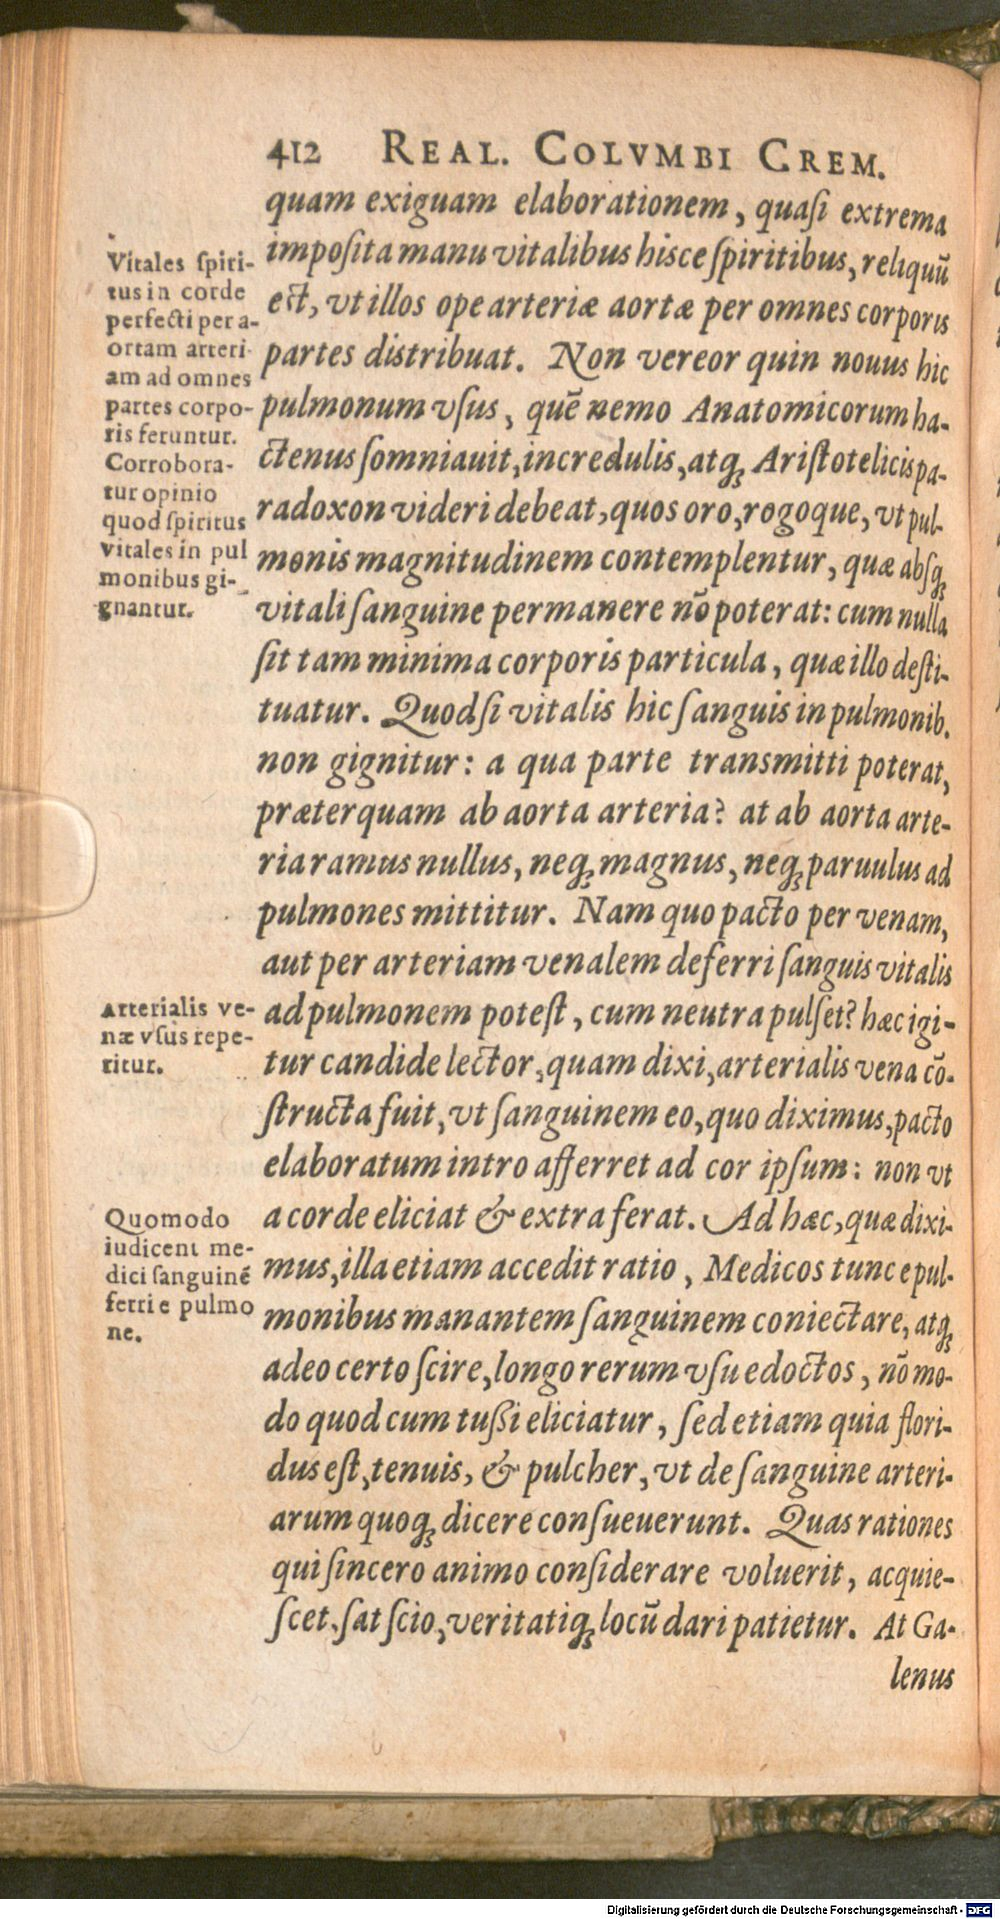 412 REAL. COLVMBI CREM.
quam exiguam elaborationem, quaſi extrema
impoſita manu vitalibus hisce ſpiritibus, reliquũ
est, vt illos ope arteriæ aortæ per omnes corporis
partes distribuat. Non vereor quin nouus hic
pulmonum vſus, quẽ nemo Anatomicorum ha-
ctenus ſomniauit, incredulis, atq́; Ariſtotelicis pa-
radoxon videri debeat, quos oro, rogoque, vt pul-
monis magnitudinem contemplentur, quæ abſq́;
vitali ſanguine permanere nõ poterat: cum nulla
ſit tam minima corporis particula, quæ illo deſti-
tuatur. Quod ſi vitalis hic ſanguis in pulmonib.
non gignitur: a qua parte transmitti poterat,
præterquam ab aorta arteria? at ab aorta arte-
ria ramus nullus, neq́; magnus, neq́; paruulus ad
pulmones mittitur. Nam quo pacto per venam,
aut per arteriam venalem deferri ſanguis vitalis
ad pulmonem poteſt, cum neutra pulſet? hæc igi-
tur candide lector, quam dixi, arterialis vena cõ-
ſtructa fuit, vt ſanguinem eo, quo diximus, pacto
elaboratum intro afferret ad cor ipſum: non vt
a corde eliciat & extra ferat. Ad hæc, quæ dixi-
mus, illa etiam accedit ratio, Medicos tunc e pul-
monibus manantem ſanguinem coniectare, atq́;
adeo certo ſcire, longo rerum vſu edoctos, nõ mo-
do quod cum tußi eliciatur, ſed etiam quia flori-
dus eſt, tenuis, & pulcher, vt de ſanguine arteri-
arum quoq́; dicere conſueuerunt. Quas rationes
qui ſincero animo conſiderare voluerit, acquie-
ſcet, ſat ſcio, veritatiq́; locũ dari patietur. At Ga-
lenus
Vitales ſpiri-
tus in corde
perfecti per a-
ortam arteri-
am ad omnes
partes corpo-
ris feruntur.
Corrobora-
tur opinio
quod ſpiritus
vitales in pul
monibus gi-
gnantur.
Arterialis ve-
næ vſus repe-
ritur.
Quomodo
iudicent me-
dici ſanguinẽ
ferri e pulmo
ne.
Digitalisierung gefördert durch die Deutsche Forschungsgemeinschaft - DFG